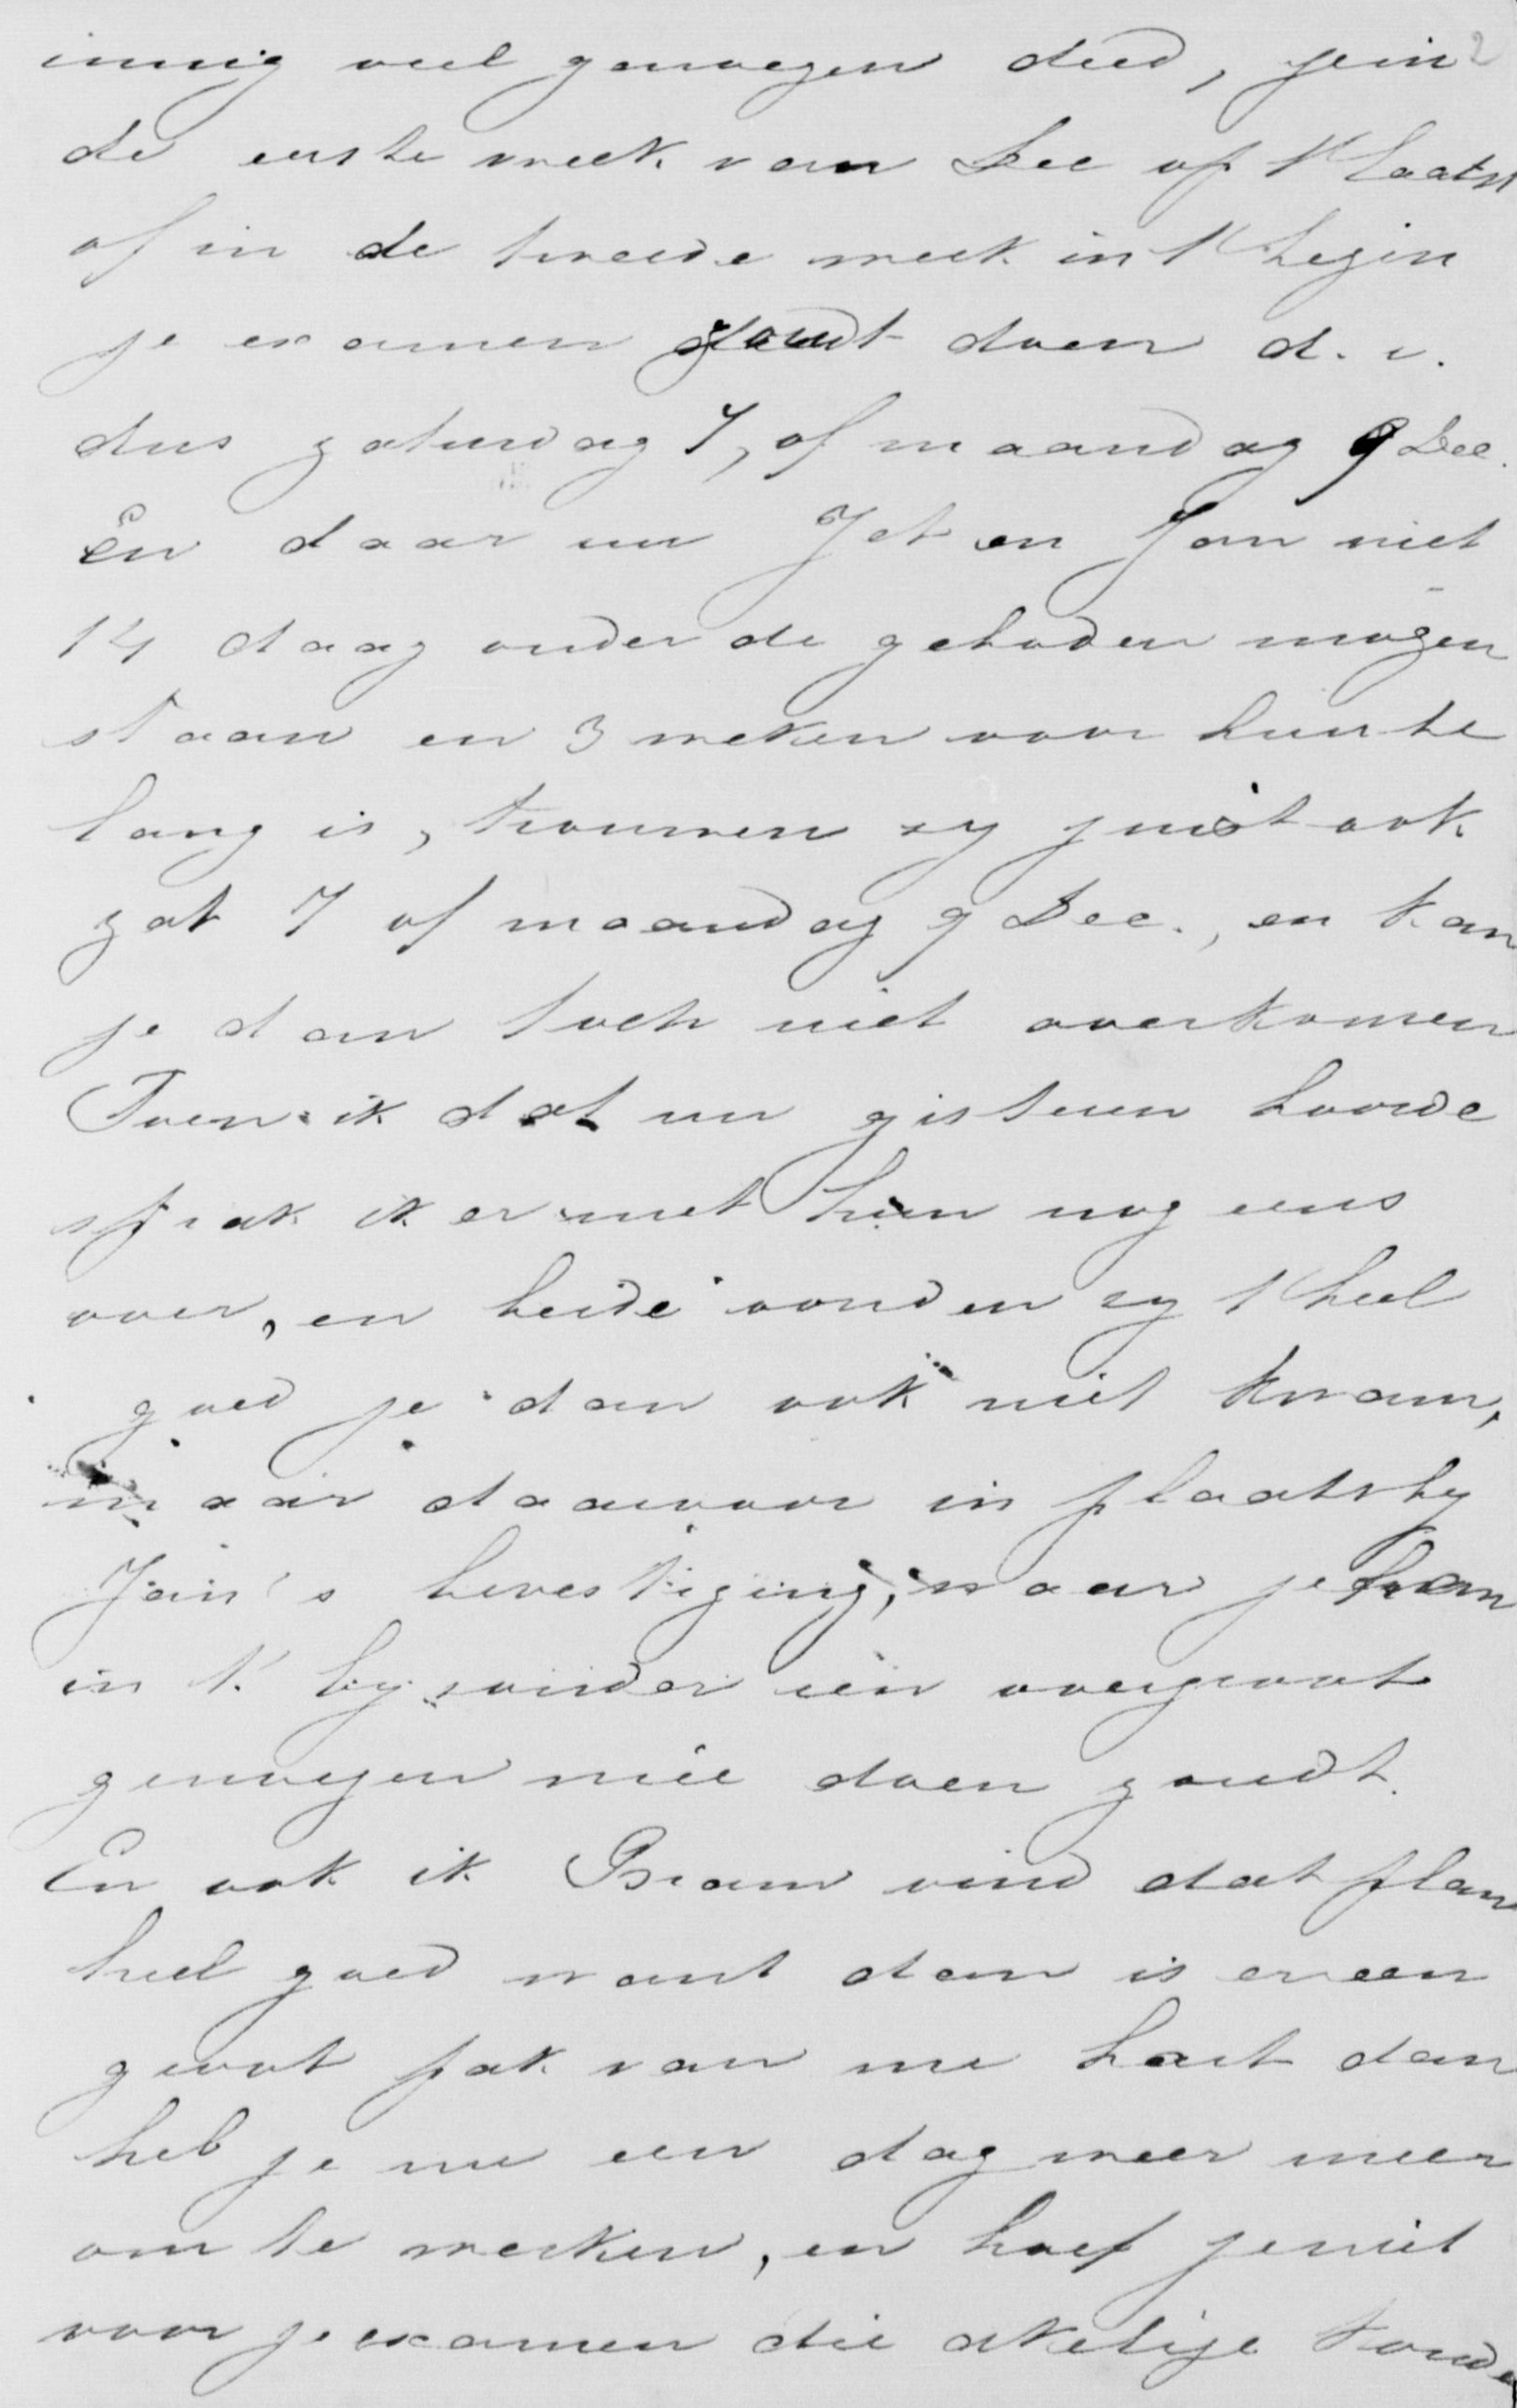 innig veel genoegen deed, je in 2
de eerste week van Dec op 't laatst
of in de tweede week in 't begin
je examen zoudt doen d. i.
dus zaturdag 7, of maandag 9 Dec.
En daar nu Jet en Jan niet
14 daag onder de geboden mogen
staan en 3 weken voor hun te
lang is, trouwen zy juist ook
zat 7 of maandag 9 Dec., en kan
je dan toch niet overkomen
Toen ik dat nu gisteren hoorde
sprak ik er met hun nog eens
over, en beide vonden zy 't heel
goed je dan ook niet kwam,
maar daarvoor in plaats by
Jan's bevestiging, waar je hem
in 't byzonder een overgroot
genoegen meê doen zoudt.
En ook ik Bram vind dat plan
heel goed want dan is er een
groot pak van me hart dan
heb je nu een dag weer meer
om te werken, en hoef je niet
voor je examen die akelige koude